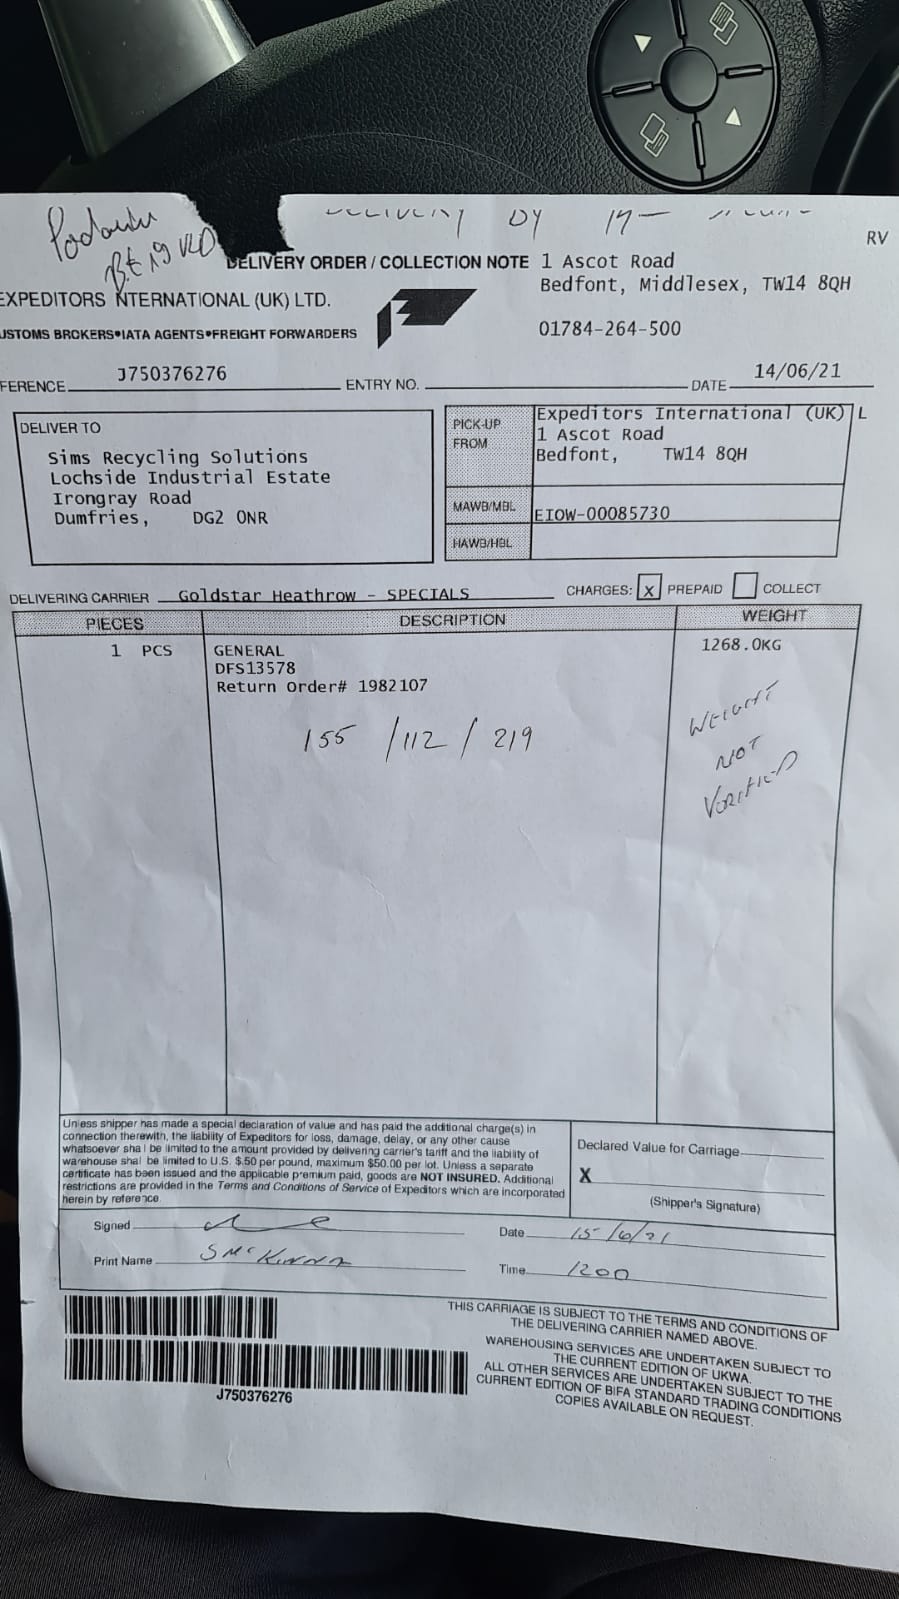 DELIVERY BY
RV
DELIVERY ORDER / COLLECTION NOTE
1 Ascot Road
Bedfont, Middlesex, TW14 8QH
01784-264-500
EXPEDITORS NTERNATIONAL (UK) LTD.
USTOMS BROKERS•IATA AGENTS•FREIGHT FORWARDERS
FERENCE J750376276 ENTRY NO. DATE 14/06/21
DELIVER TO
Sims Recycling Solutions
Lochside Industrial Estate
Irongray Road
Dumfries, DG2 0NR
PICK-UP
FROM
Expeditors International (UK) L
1 Ascot Road
Bedfont, TW14 8QH
MAWB/MBL EIOW-00085730
HAWB/HBL
DELIVERING CARRIER Goldstar Heathrow - SPECIALS CHARGES: X PREPAID COLLECT
PIECES DESCRIPTION WEIGHT
1 PCS GENERAL 1268.0KG
DFS13578
Return Order# 1982107
155 / 112 / 219
WEIGHT
NOT
VERIFIED
Unless shipper has made a special declaration of value and has paid the additional charge(s) in
connection therewith, the liability of Expeditors for loss, damage, delay, or any other cause
whatsoever shal be limited to the amount provided by delivering carrier's tariff and the liability of
warehouse shal be limited to U.S. $.50 per pound, maximum $50.00 per lot. Unless a separate
certificate has been issued and the applicable premium paid, goods are NOT INSURED. Additional
restrictions are provided in the Terms and Conditions of Service of Expeditors which are incorporated
herein by reference.
Declared Value for Carriage
X
(Shipper's Signature)
Signed Date 15/6/21
Print Name S McKinna Time 1200
J750376276
THIS CARRIAGE IS SUBJECT TO THE TERMS AND CONDITIONS OF
THE DELIVERING CARRIER NAMED ABOVE.
WAREHOUSING SERVICES ARE UNDERTAKEN SUBJECT TO
THE CURRENT EDITION OF UKWA.
ALL OTHER SERVICES ARE UNDERTAKEN SUBJECT TO THE
CURRENT EDITION OF BIFA STANDARD TRADING CONDITIONS
COPIES AVAILABLE ON REQUEST.